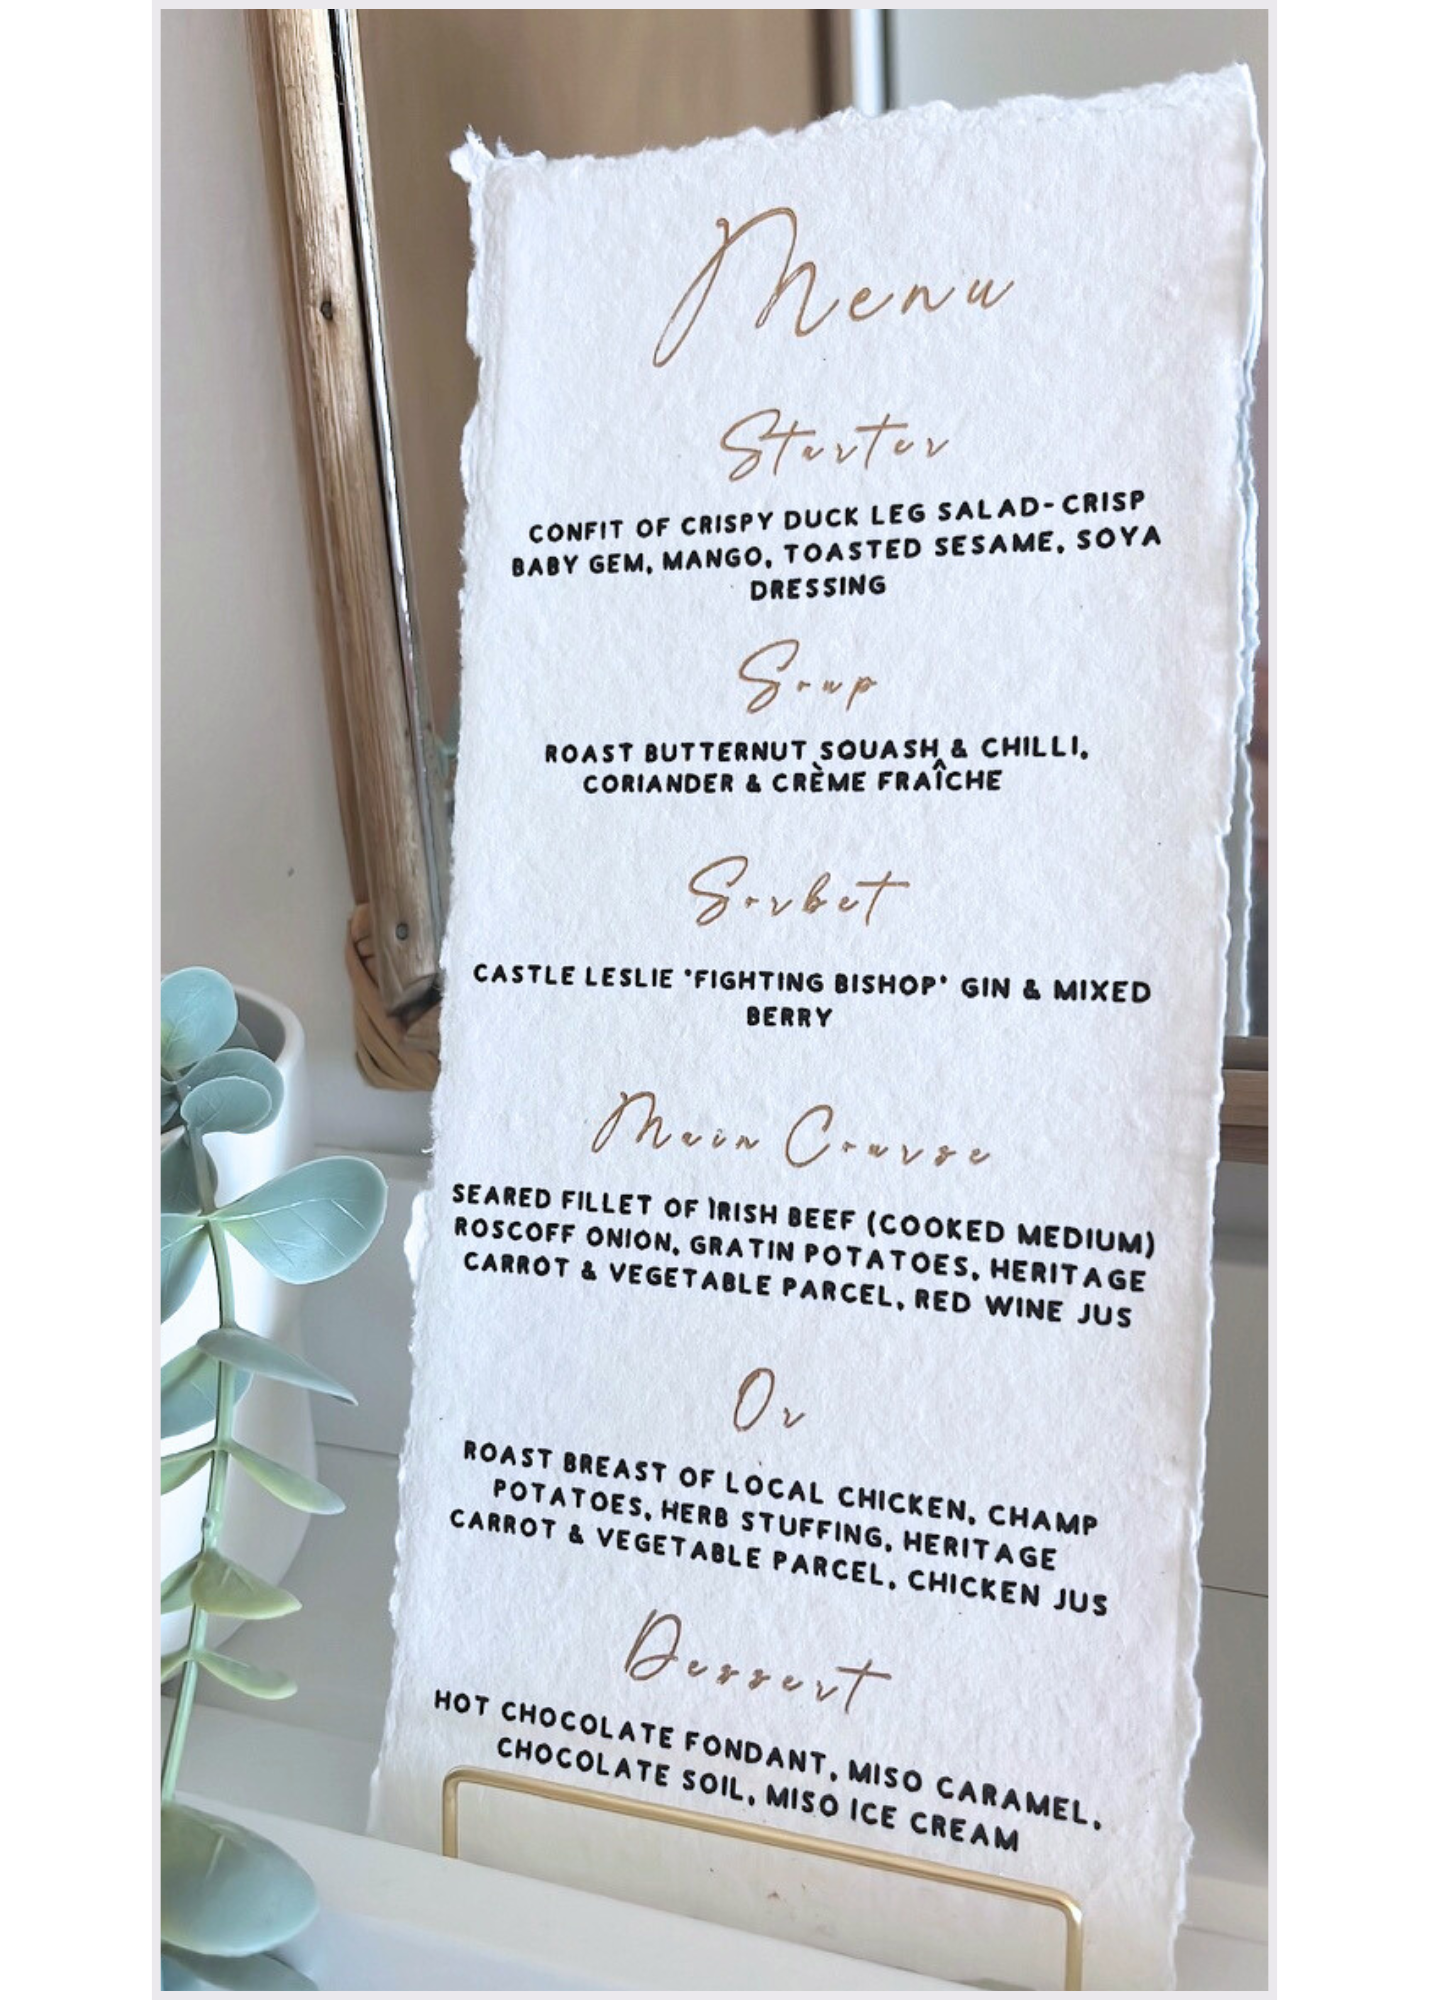 Menu
Starter
CONFIT OF CRISPY DUCK LEG SALAD-CRISP
BABY GEM, MANGO, TOASTED SESAME, SOYA
DRESSING
Soup
ROAST BUTTERNUT SQUASH & CHILLI,
CORIANDER & CRÈME FRAÎCHE
Sorbet
CASTLE LESLIE 'FIGHTING BISHOP' GIN & MIXED
BERRY
Main Course
SEARED FILLET OF IRISH BEEF (COOKED MEDIUM)
ROSCOFF ONION, GRATIN POTATOES, HERITAGE
CARROT & VEGETABLE PARCEL, RED WINE JUS
Or
ROAST BREAST OF LOCAL CHICKEN, CHAMP
POTATOES, HERB STUFFING, HERITAGE
CARROT & VEGETABLE PARCEL, CHICKEN JUS
Dessert
HOT CHOCOLATE FONDANT, MISO CARAMEL,
CHOCOLATE SOIL, MISO ICE CREAM